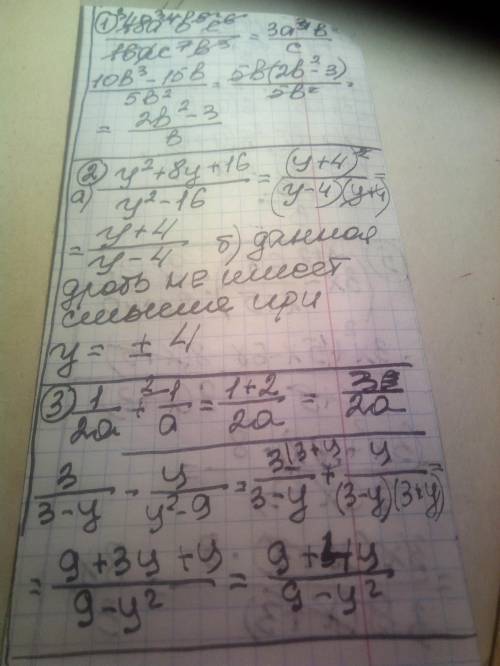 ① 48a⁴b⁵c⁶/16ac⁷b³ = 3a³b²/c
10b³-15b/5b² = 5b(2b²-3)/5b² =
= 2b²-3/b
② a) y²+8y+16/y²-16 = (y+4)²/(y-4)(y+4) =
= y+4/y-4 б) данная
дробь не имеет
смысла при
y = ± 4
③ 1/2a + ²⁻1/a = 1+2/2a = 3/2a
3/3-y - y/y²-9 = 3(3+y/3-y + y/(3-y)(3+y) =
= 9+3y+y/9-y² = 9+4y/9-y²